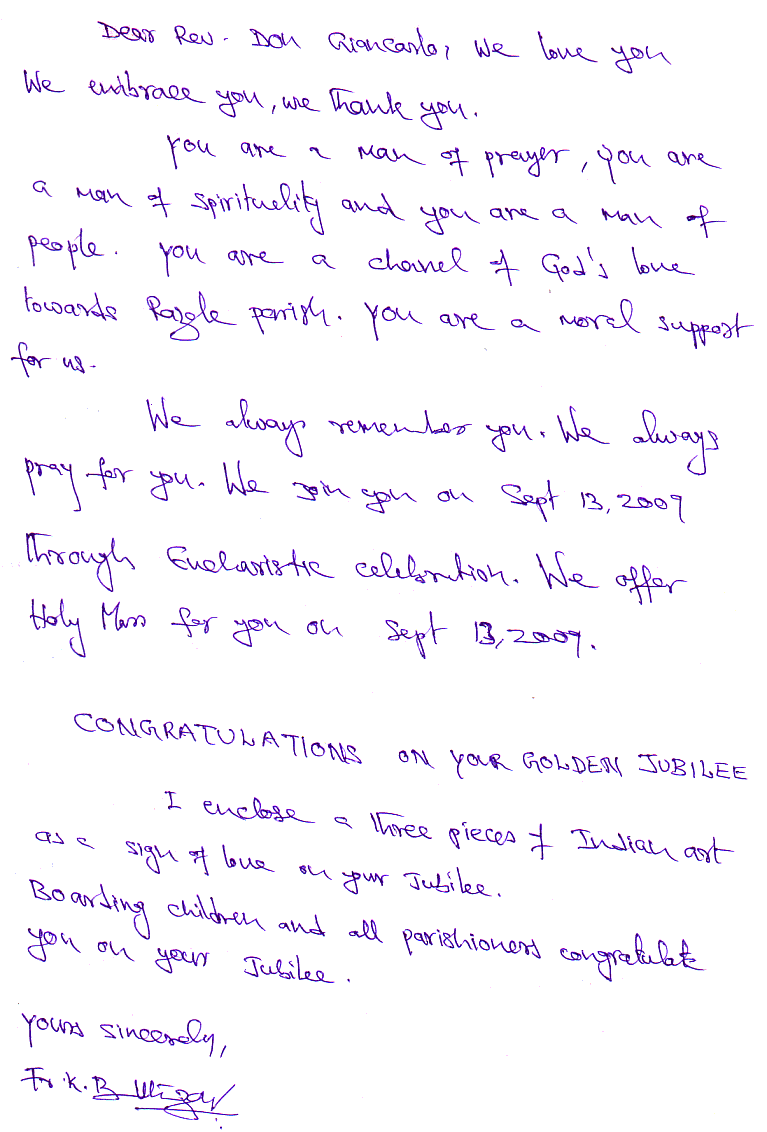 Dear Rev. Don Giancarlo, We love you
We embrace you, we Thank you.
You are a man of prayer, you are
a man of spirituality and you are a man of
people. You are a chanel of God's love
towards parish. You are a moral support
for us.
We always remember you. We always
pray for you. We join you on Sept 13, 2009
Through Eucharistic celebration. We offer
Holy Mass for you on Sept 13, 2009.
CONGRATULATIONS ON YOUR GOLDEN JUBILEE
I enclose a three pieces of Indian art
as a sign of love on your Jubilee.
Boarding children and all parishioners congratulate
you on your Jubilee.
Yours sincerely,
Fr. K. B